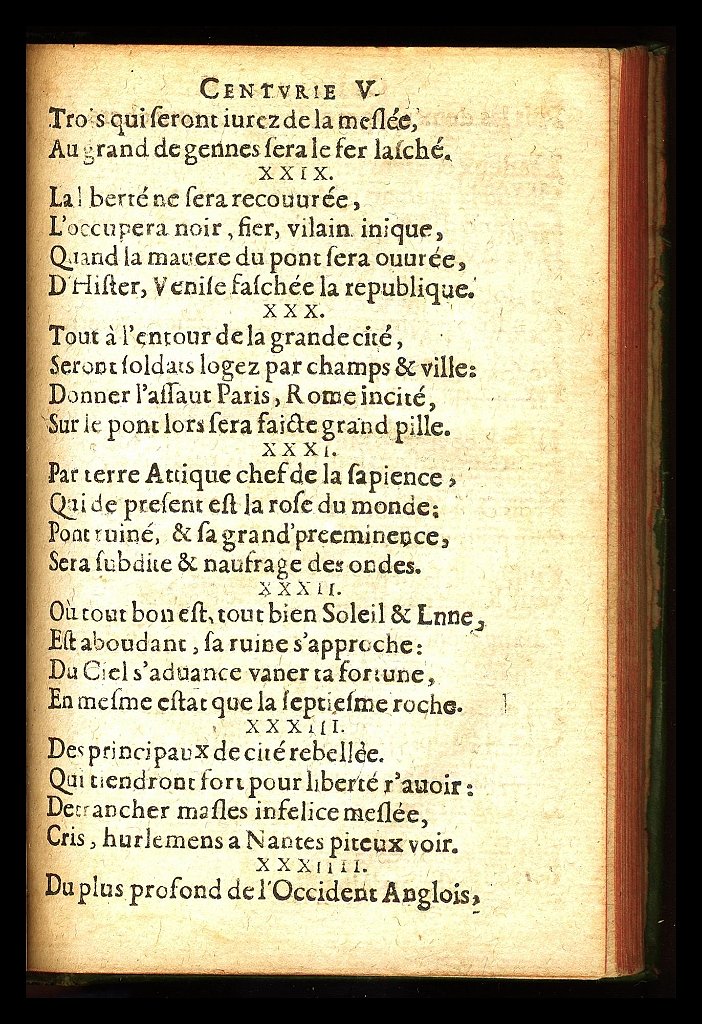 CENTVRIE V.
Trois qui ſeront iurez de la meſlée,
Au grand de gennes ſera le fer laſché.
XXIX.
La l berté ne ſera recouurée,
L'occupera noir, fier, vilain inique,
Quand la mauere du pont ſera ouurée,
D'Hiſter, Veniſe faſchée la republique.
XXX.
Tout à l'entour de la grande cité,
Seront ſoldats logez par champs & ville:
Donner l'aſſaut Paris, Rome incité,
Sur le pont lors ſera faicte grand pille.
XXXI.
Par terre Attique chef de la ſapience,
Qui de preſent eſt la roſe du monde:
Pont ruiné, & ſa grand'preeminence,
Sera ſubdite & naufrage des ondes.
XXXII.
Où tout bon eſt, tout bien Soleil & Lnne,
Eſt aboudant, ſa ruine s'approche:
Du Ciel s'aduance vaner ta fortune,
En meſme eſtat que la ſeptieſme roche.
XXXIII.
Des principaux de cité rebellée.
Qui tiendront fort pour liberté r'auoir:
Detrancher maſles infelice meſlée,
Cris, hurlemens a Nantes piteux voir.
XXXIIII.
Du plus profond de l'Occident Anglois,